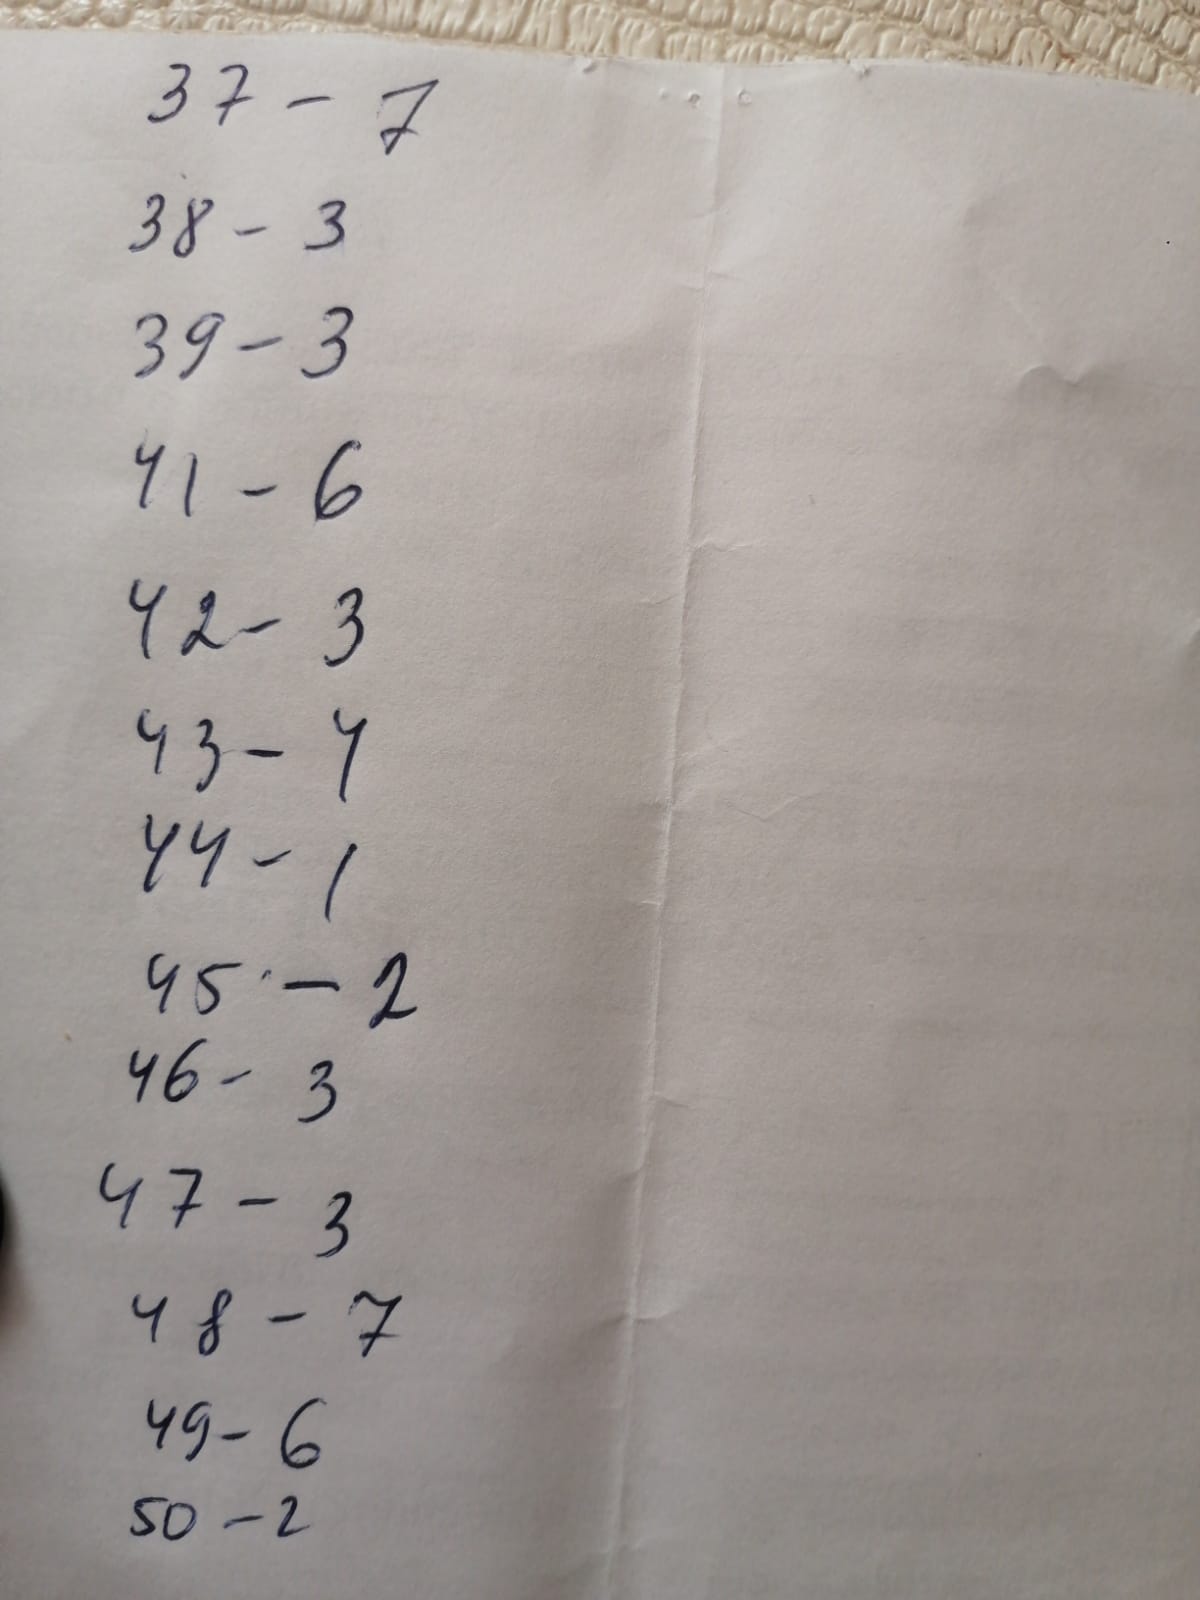 37 - 7
38 - 3
39 - 3
41 - 6
42 - 3
43 - 4
44 - 1
45 - 2
46 - 3
47 - 3
48 - 7
49 - 6
50 - 2